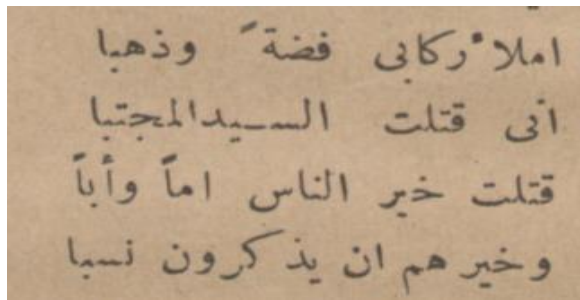 املاْ ركابى فضةً وذهبا
انى قتلت السيد المجتبا
قتلت خير الناس اماً وأباً
وخير هم ان يذكرون نسبا